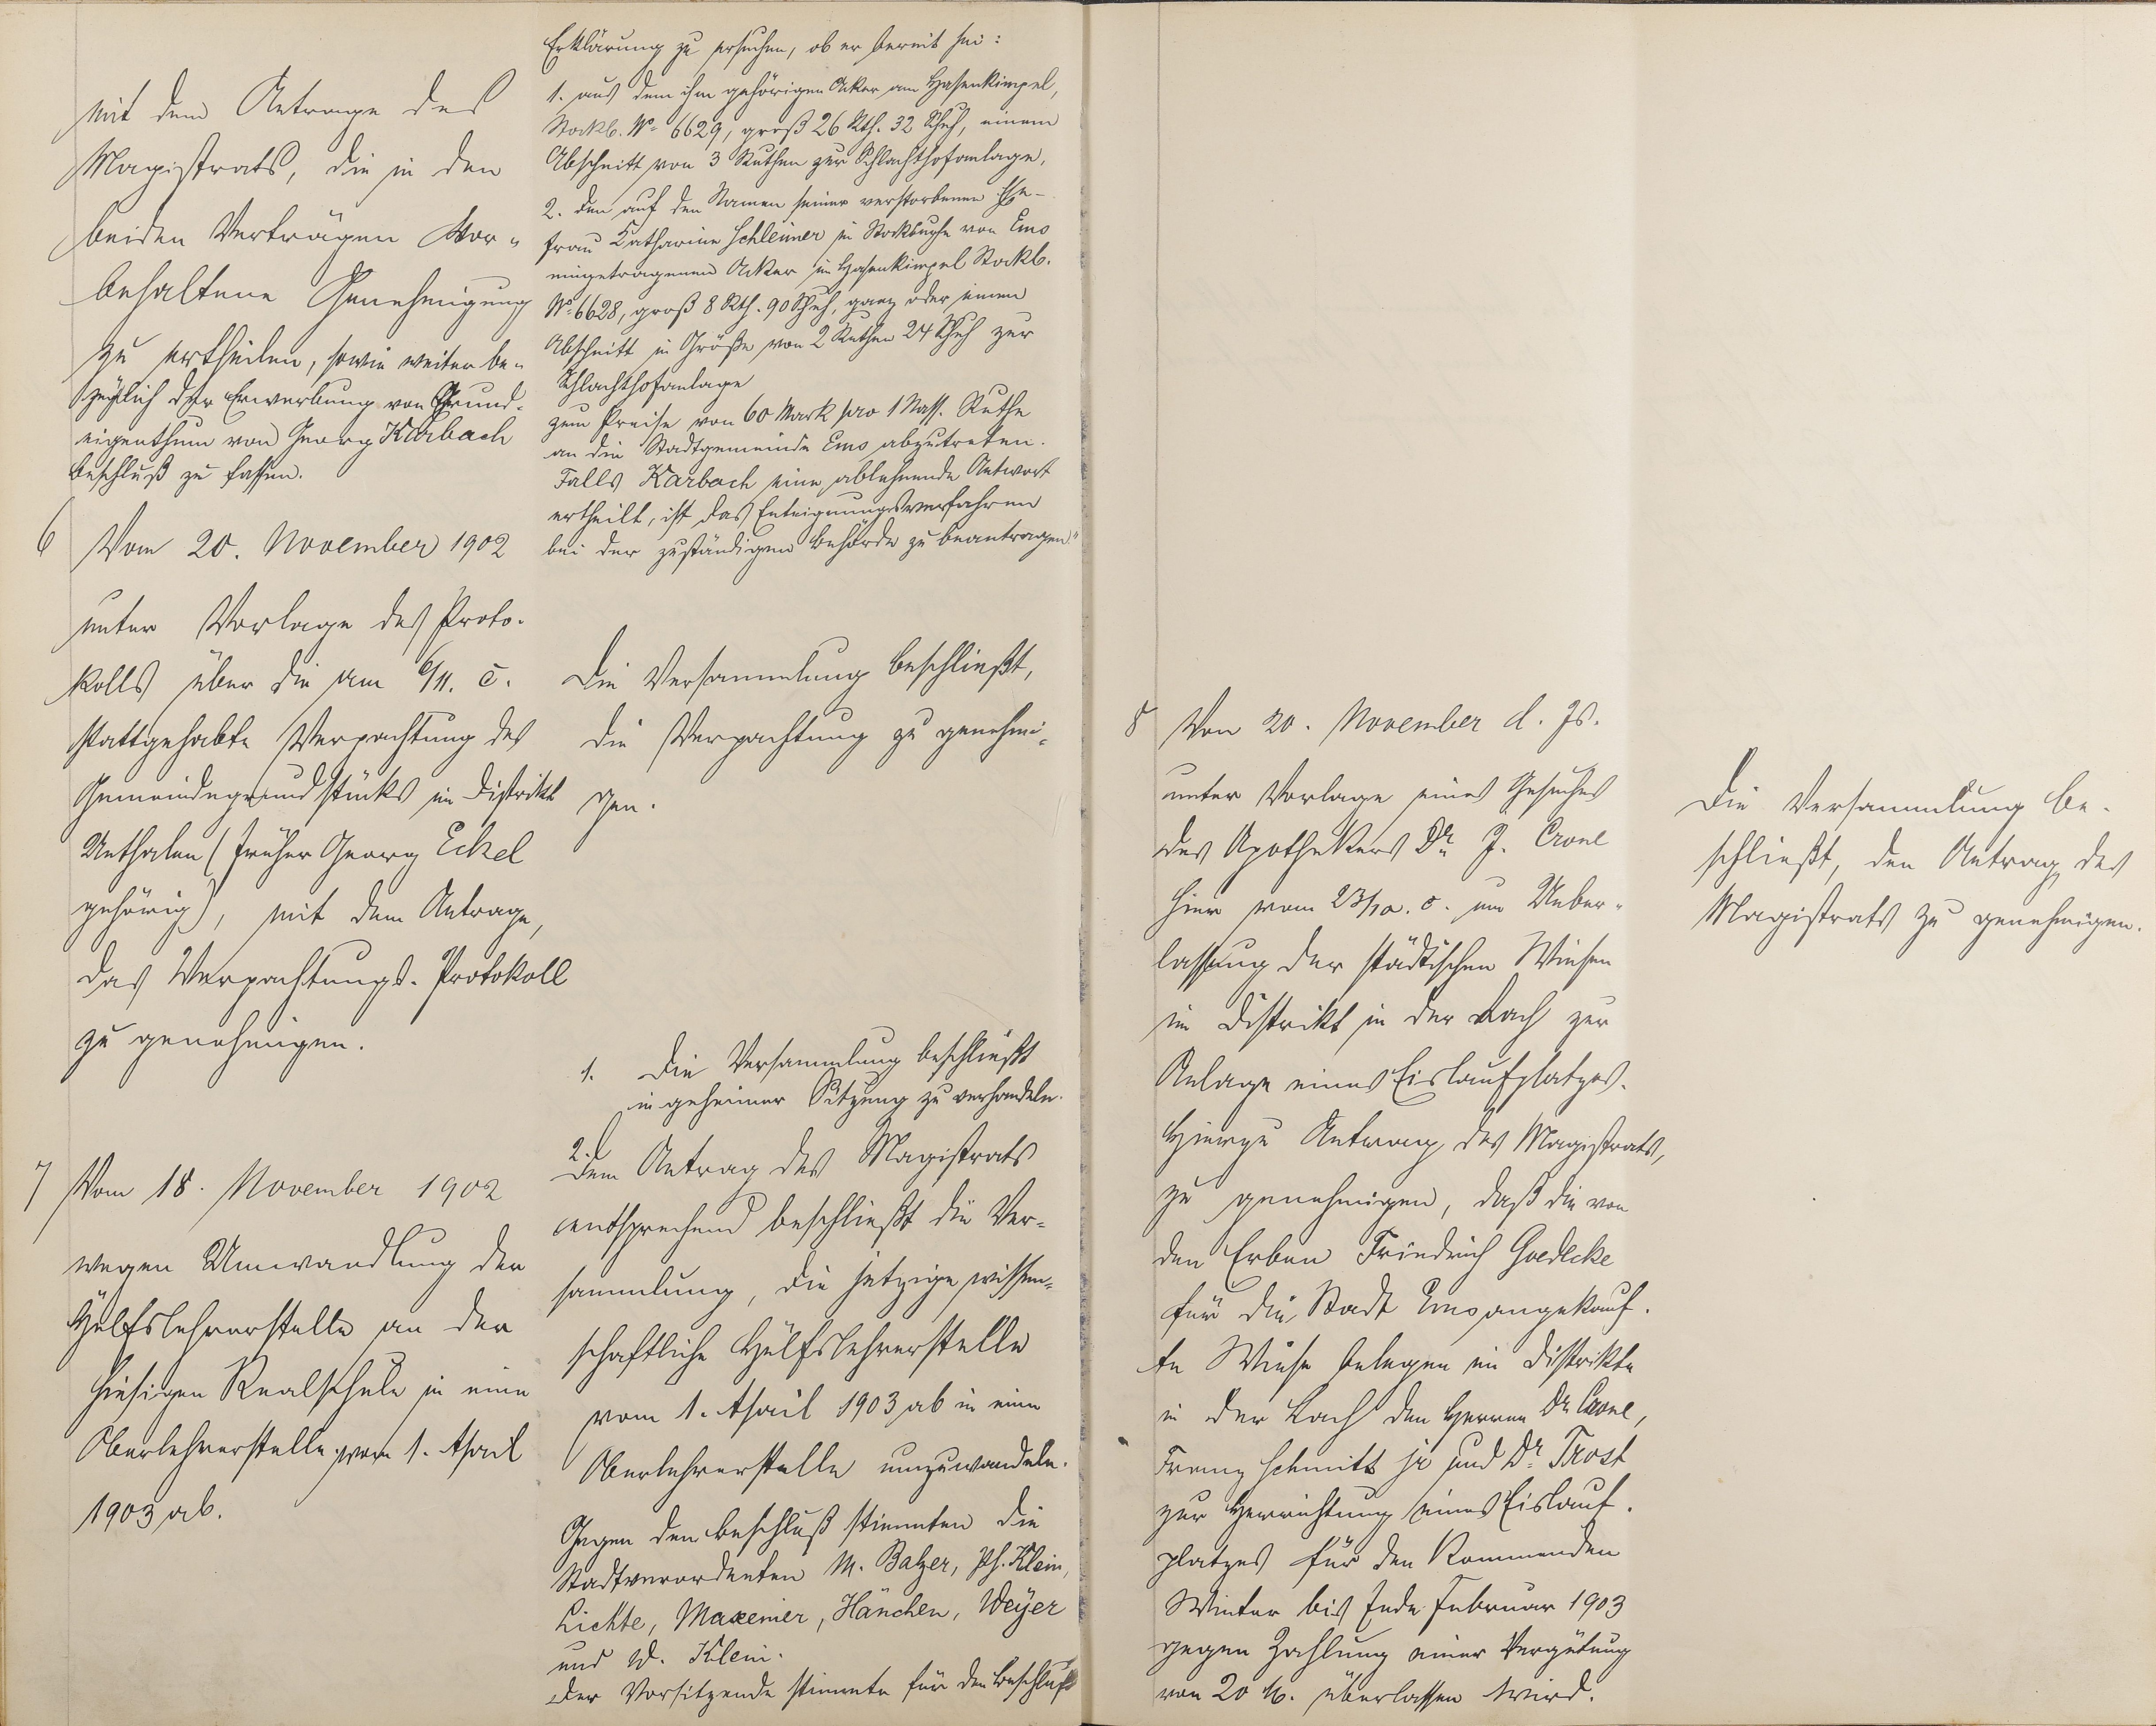 mit dem Antrage des
Magistrats, die in den
beiden Verträgen vor-
behaltene Genehmigung
zu ertheilen, sowie weiter be-
züglich der Erwerbung von Grund-
eigenthum von Georg Karbach
Beschluß zu fassen.
Erklärung zu ersuchen, ob er bereit sei:
1. aus dem ihm gehörigen Acker am Hasenkimpel,
Stockb. No 6629, groß 26 Rth. 32 Schuh, einem
Abschnitt von 3 Ruthen zur Schlachthofanlage,
2. den auf den Namen seiner verstorbenen Ehe-
frau Katharine Schleimer im Stockbuche von Ems
eingetragenen Acker im Hasenkimpel Stockb.
No 6628, groß 8 Rth. 90 Schuh, ganz oder einen
Abschnitt in Größe von 2 Ruthen 24 Schuh zur
Schlachthofanlage
zum Preise von 60 Mark pro 1 Nass. Ruthe
an die Stadtgemeinde Ems abzutreten.
Falls Karbach eine ablehnende Antwort
ertheilt, ist das Enteignungsverfahren
bei der zuständigen Behörde zu beantragen."
6 Vom 20. November 1902
unter Vorlage des Proto-
kolls über die am 6/11. c.
stattgehabte Verpachtung des
Gemeindegrundstücks im Distrikt
Unthalen (früher Georg Eckel
gehörig), mit dem Antrage,
das Verpachtungs-Protokoll
zu genehmigen.
Die Versammlung beschließt,
die Verpachtung zu genehmi-
gen.
7 Vom 18. November 1902
wegen Umwandlung der
Hülfslehrerstelle an der
hiesigen Realschule in eine
Oberlehrerstelle vom 1. April
1903 ab.
1. Die Versammlung beschließt
in geheimer Sitzung zu verhandeln.
2. Dem Antrag des Magistrats
entsprechend beschließt die Ver-
sammlung, die jetzige wissen-
schaftliche Hülfslehrerstelle
vom 1. April 1903 ab in eine
Oberlehrerstelle umzuwandeln.
Gegen den Beschluß stimmten die
Stadtverordneten M. Balzer, Ph. Klein,
Lichte, Maxeiner, Hänchen, Weyer
und W. Klein.
Der Vorsitzende stimmte für den Beschluß
8 Von 20. November d. Js.
unter Vorlage eines Gesuches
des Apothekers Dr. J. Crone
hier vom 23/10. c. um Ueber-
lassung der städtischen Wiesen
im Distrikt in der Lach zur
Anlage eines Eislaufplatzes.
Hierzu Antrag des Magistrats,
zu genehmigen, daß die von
den Erben Friedrich Goedecke
für die Stadt Ems angekauf-
te Wiese belegen im Distrikte
in der Lach den Herren Dr. Crone,
Franz Schmitt jr und Dr. Trost
zur Herrichtung eines Eislauf-
platzes für den kommenden
Winter bis Ende Februar 1903
gegen Zahlung einer Vergütung
von 20 M. überlassen wird.
Die Versammlung be-
schließt, den Antrag des
Magistrats zu genehmigen.